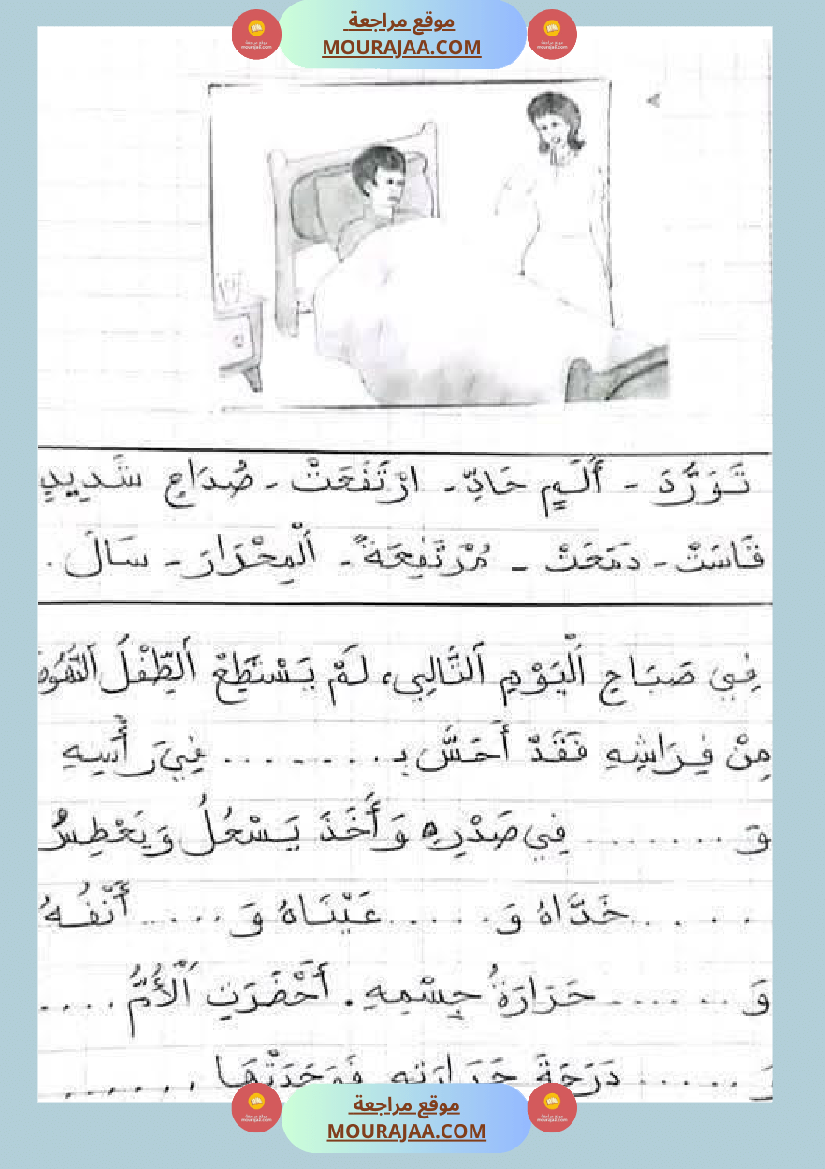 موقع مراجعة
MOURAJAA.COM
تَوَرَّدَ - أَلَمٍ حَادٍّ - ارْتَفَعَتْ - صُدَاعٍ شَدِيدٍ
قَاسَتْ - دَمَعَتْ - مُرْتَفِعَةً - اَلْمِحْرَارَ - سَالَ .
فِي صَبَاحِ اَلْيَوْمِ اَلتَّالِي، لَمْ يَسْتَطِعْ اَلطِّفْلُ
مِنْ فِرَاشِهِ فَقَدْ أَحَسَّ بِـ ........ فِي رَأْسِهِ
وَ ........ فِي صَدْرِهِ وَأَخَذَ يَسْعُلُ وَيَعْطِسُ
...... خَدَّاهُ وَ ...... عَيْنَاهُ وَ ..... أَنْفُهُ
وَ ....... حَرَارَةُ جِسْمِهِ . أَحْضَرَتِ اَلْأُمُّ ....
وَ ...... دَرَجَةَ حَرَارَتِهِ فَوَجَدَتْهَا ......
موقع مراجعة
MOURAJAA.COM